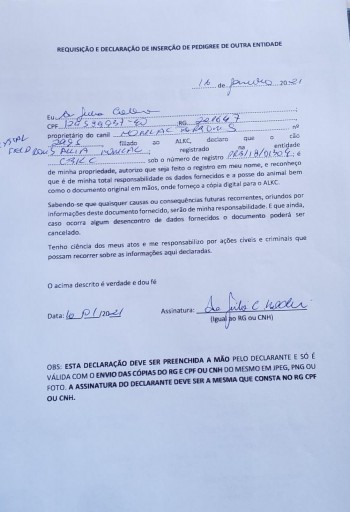 REQUISIÇÃO E DECLARAÇÃO DE INSERÇÃO DE PEDIGREE DE OUTRA ENTIDADE
de Janeiro 2021
Eu
CPF RG
proprietário do canil nº
filiado ao ALKC, declaro que o cão
registrado na entidade
CBKC sob o número de registro é
de minha propriedade, autorizo que seja feito o registro em meu nome, e reconheço
que é de minha total responsabilidade os dados fornecidos e a posse do animal bem
como o documento original em mãos, onde forneço a cópia digital para o ALKC.
Sabendo-se que quaisquer causas ou consequências futuras recorrentes, oriundos por
informações deste documento fornecido, serão de minha responsabilidade. E que ainda,
caso ocorra algum desencontro de dados fornecidos o documento poderá ser
cancelado.
Tenho ciência dos meus atos e me responsabilizo por ações cíveis e criminais que
possam recorrer sobre as informações aqui declaradas.
O acima descrito é verdade e dou fé
Data: Assinatura:
(Igual ao RG ou CNH)
OBS: ESTA DECLARAÇÃO DEVE SER PREENCHIDA A MÃO PELO DECLARANTE E SÓ É
VÁLIDA COM O ENVIO DAS CÓPIAS DO RG E CPF OU CNH DO MESMO EM JPEG, PNG OU
FOTO. A ASSINATURA DO DECLARANTE DEVE SER A MESMA QUE CONSTA NO RG CPF
OU CNH.